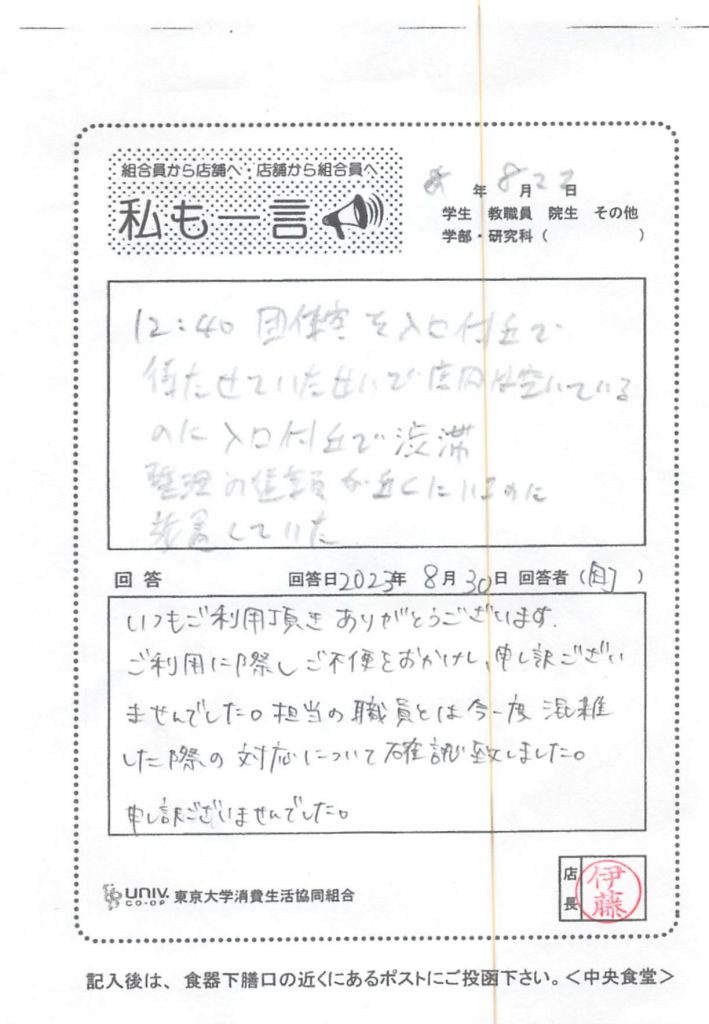 組合員から店舗へ・店舗から組合員へ
私も一言
年 8月22日
学生 教職員 院生 その他
学部・研究科( )
12:40 団体客を入口付近で
待たせていたせいで店内は空いている
のに入口付近で渋滞
整理の職員が近くにいるのに
放置していた
回答 回答日2023年 8月30日 回答者( )
いつもご利用頂きありがとうございます.
ご利用に際しご不便をおかけし、申し訳ござい
ませんでした。担当の職員とは今一度混雑
した際の対応について確認致しました。
申し訳ございませんでした。
店長
伊藤
UNIV.
CO-OP
東京大学消費生活協同組合
記入後は、食器下膳口の近くにあるポストにご投函下さい。<中央食堂>